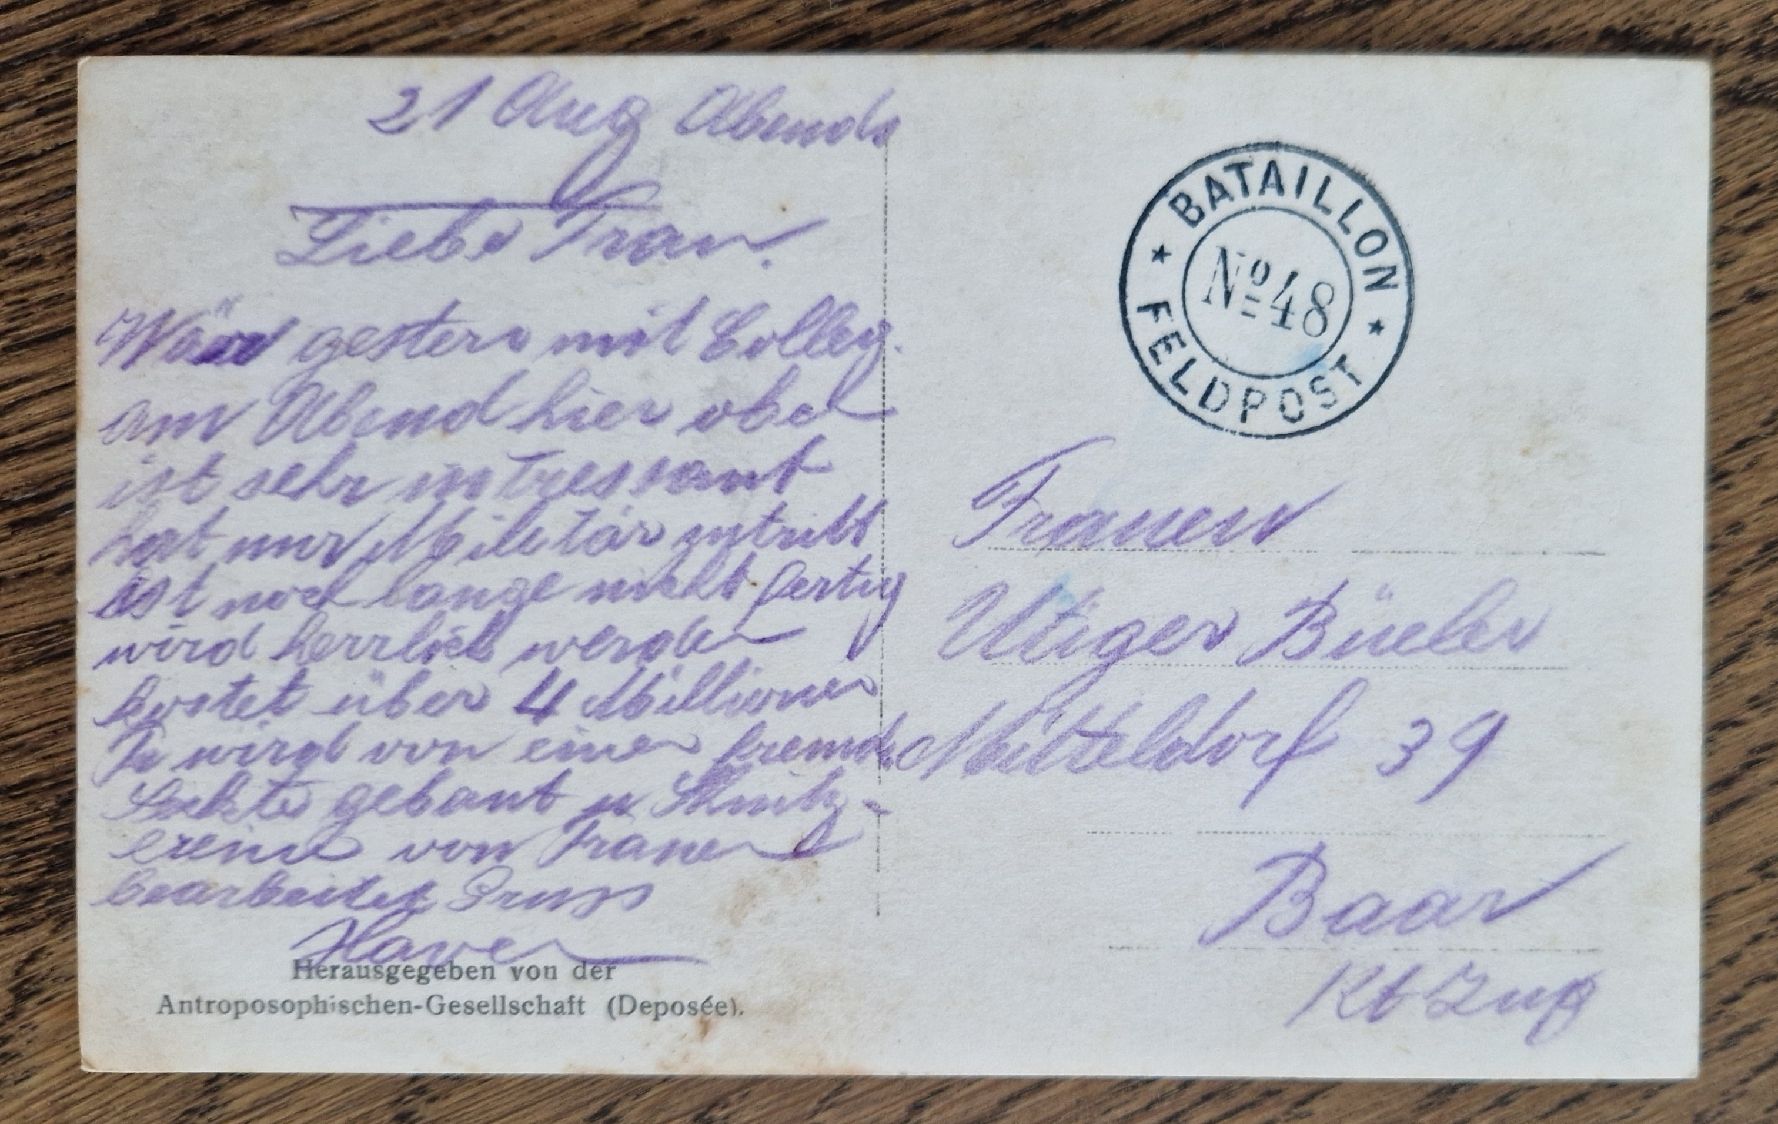 21 Aug Abends
Liebe Frau.
War gestern mit Colleg.
am Abend hier obe
ist sehr intressant
hat nur Militär zutritt
ist noch lange nicht fertig
wird herrlich werden
kostet über 4 Millionen
Fr wird von einer fremde
Sekte gebaut u Schnitz-
ereine von Frauen
bearbeitet Gruss
Xaver
Herausgegeben von der
Antroposophischen-Gesellschaft (Deposée).
BATAILLON
No 48
FELDPOST
Frauen
Utiger Büeler
Mitteldorf 39
Baar
Kt Zug